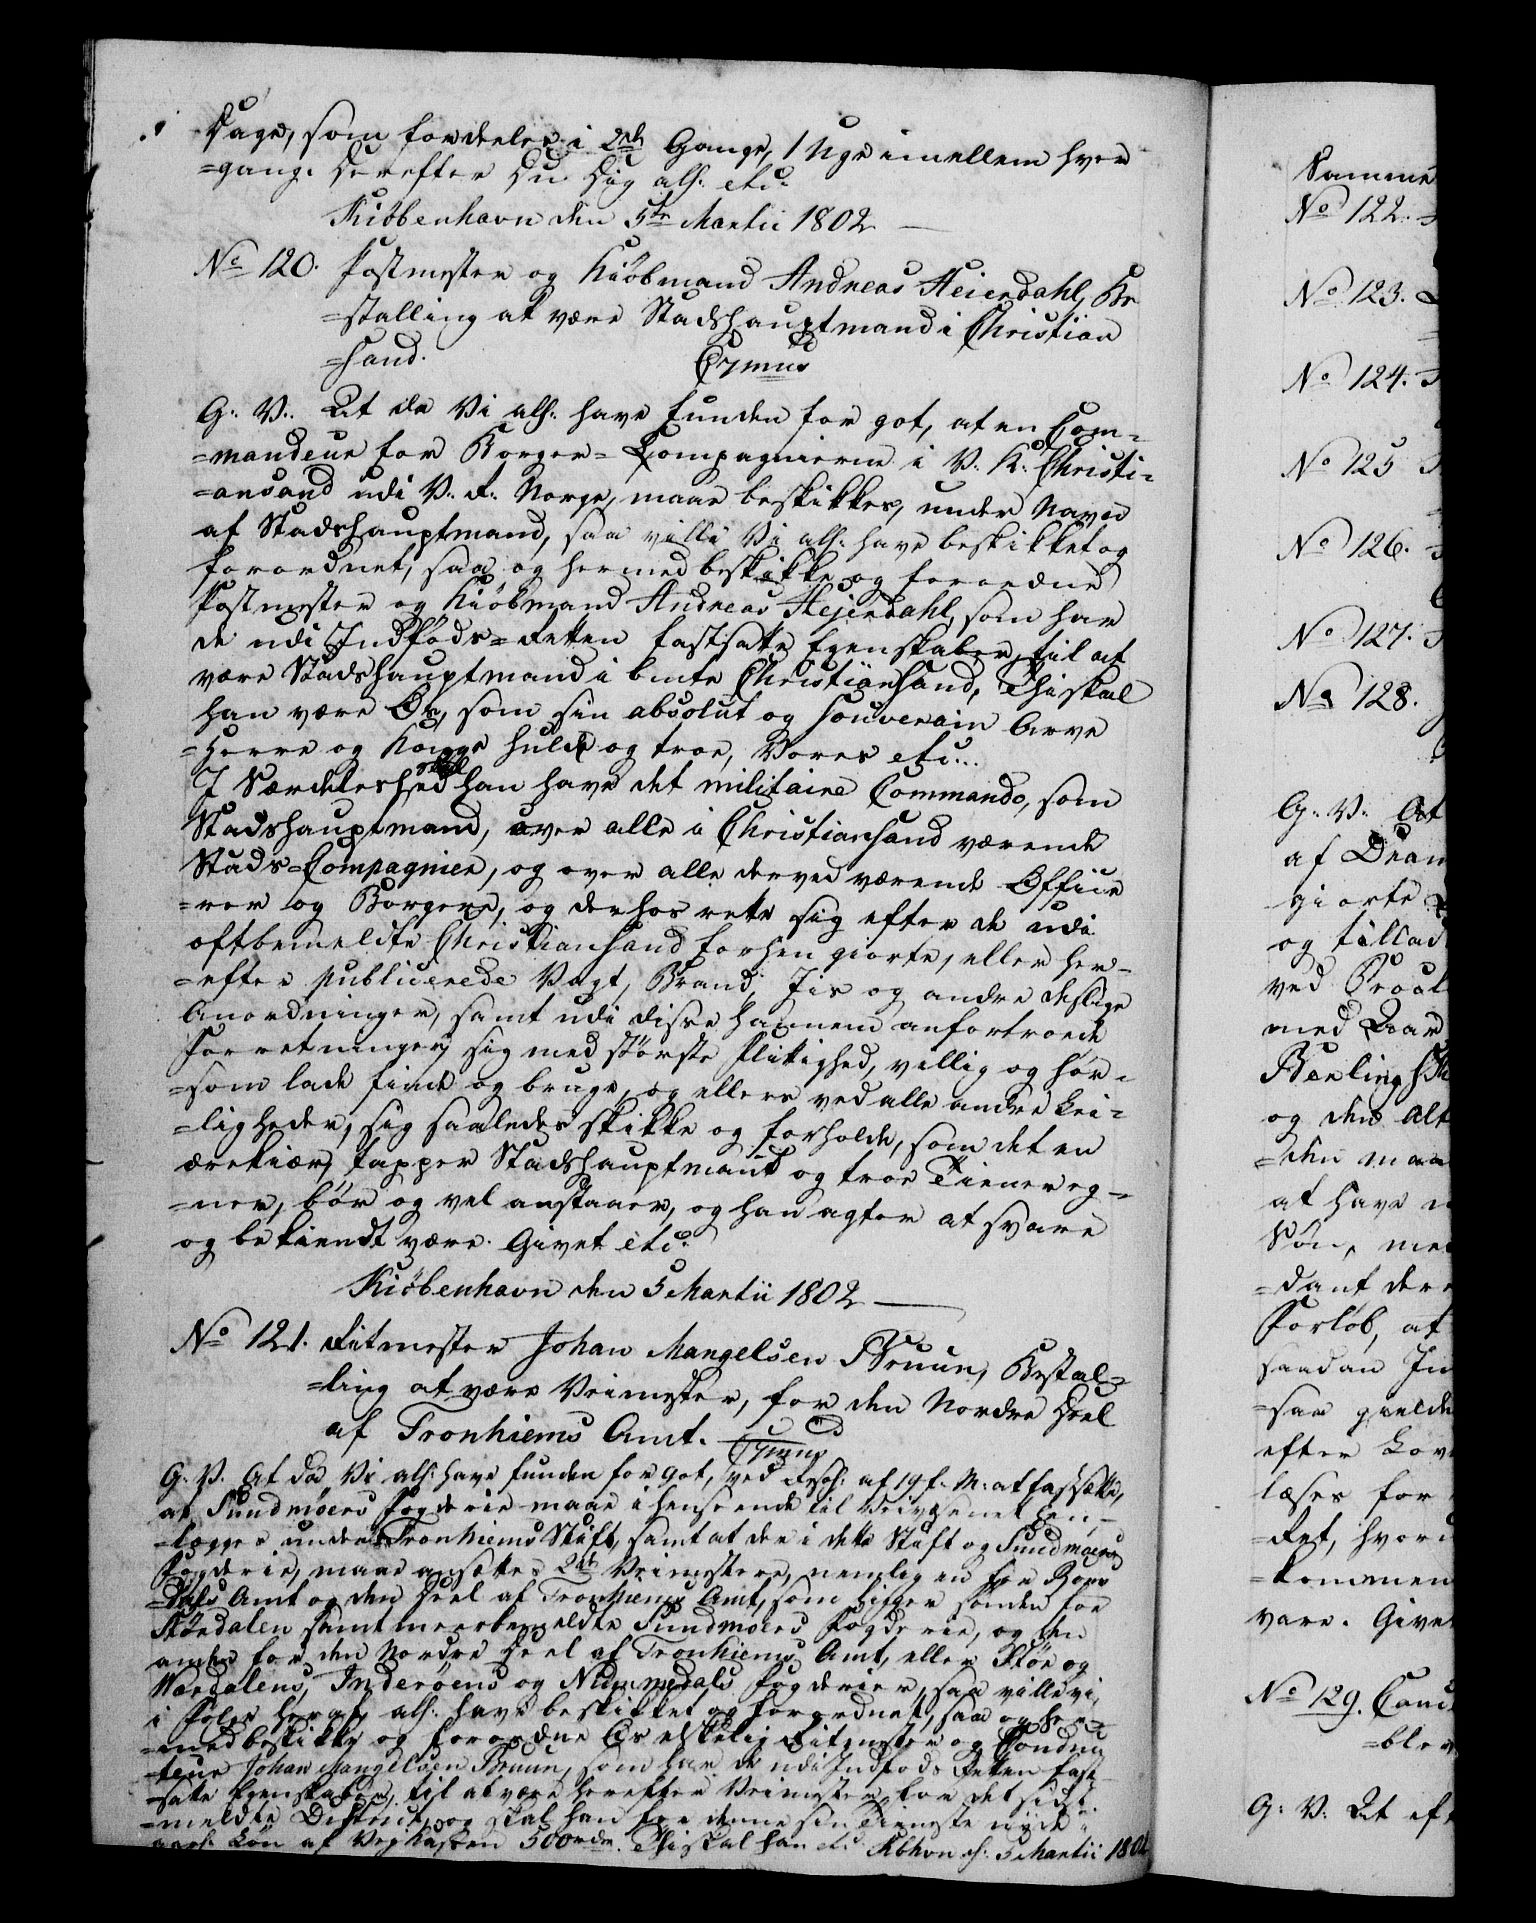 Dage, som fordeeles i 2de Gange, 1 Uge imellem hver
=gang. Derefter Du Dig alh: etc:
Kiöbenhavn den 5te Martii 1802
No 120. Postmester og Kiöbmand Andreas Heierdahl, Be
=stalling at være Stadshauptmand i Christian
=sand.
G: V: At da Vi alh: have funden for got, at en Com=
=mandeur for Borger=Compagnierne i V: K: Christi=
=ansand udi V: R: Norge, maae beskikkes, under Navn
af Stadshauptmand, saa ville Vi alh: have beskikket og
forordnet, saa og hermed beskikke og forordne
Postmester og Kiöbmand Andreas Hejerdahl, som har
de udi Indföds=Retten fastsatte Egenskaber, til at
være Stadshauptmand i bmte Christiansand, Thi skal
han være Os, som sin absolut og souverain Arve
=Herre og Konge huld og troe, Vores etc:
I Særdeleshed skal han have det militaire Commando, som
Stadshauptmand, over alle i Christiansand værende
Stads=Compagnier, og over alle derved værende Office
=rer og Borgere, og derhos rette sig efter de udi
oftbemeldte Christiansand forhen giorte, eller her=
=efter publicerede Vagt, Brand, Iis og andre deslige
Anordninger, samt udi disse hannem anfortroede
Forretninger sig med störste Flitighed, villig og hör=
=som lade finde og bruge, og ellers ved alle andre Lei=
=ligheder, sig saaledes skikke og forholde, som det en
ærekiær, tapper Stadshauptmand og troe Tiener eg=
=ner, bör og vel anstaaer, og han agter at svare
og bekiendt være. Givet etc:
Kiöbenhavn den 5 Martii 1802
No 121. Ritmester Johan Mangelsen Bruun, Bestal=
=ling at være Veimester, for den Nordre Deel
af Tronhiems Amt.
G: V: At da Vi alh: have funden for got, ved Resol: af 19 f: M: at fastsætte,
at Sundmöers Fogderie maae i henseende til Veivæsenet hen=
=lægges under Tronhiems Stift, samt at der i dette Stift og Sundmöers
Fogderie, maae ansættes 2de Veimestere, nemlig en for Roms
=dals Amt og den Deel af Tronhiems Amt, som ligger sönden for
Stördalen samt meerbemeldte Sundmöers Fogderie, og den
anden for den Nordre Deel af Tronhiems Amt, eller Stör og
Værdalens, Inderöens og Nummedals Fogderier, saa ville vi,
i Fölge heraf, alh: have beskikket og forordnet, saa og her=
=med beskikke og forordne Os elskelig Ritmester og Conduc
=teur Johan Mangelsen Bruun, som har de udi Indföds Retten fast
=satte Egenskaber, til at være herefter Veimester for det sidst=
=meldte District, og skal han for denne sin Tieneste nyde i
aarl: Lön af Veykassen 500 rdr. Thi skal han etc: Kbhvn d: 5 Martii 1802
Samme
No 122.
No 123.
No 124.
No 125
No 126.
No 127.
No 128.
G: V: At
af Dram
giorte
og tillad
ved Procl
med Aar
Berling
og den Alt
=den maa
at have
Sön, med
=dant der
Forlöb, at
saadan In
=saa gielde
efter Lov
læses for
=Ret, hvor
=kommen
vare. Givet
No 129. Cand
=ble
G: V: At eft